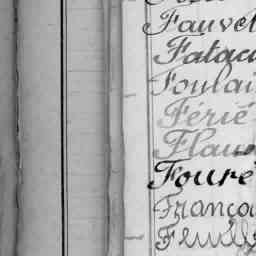 Fauvet
Fatac
Foulai
Férié
Flau
Fouré
França